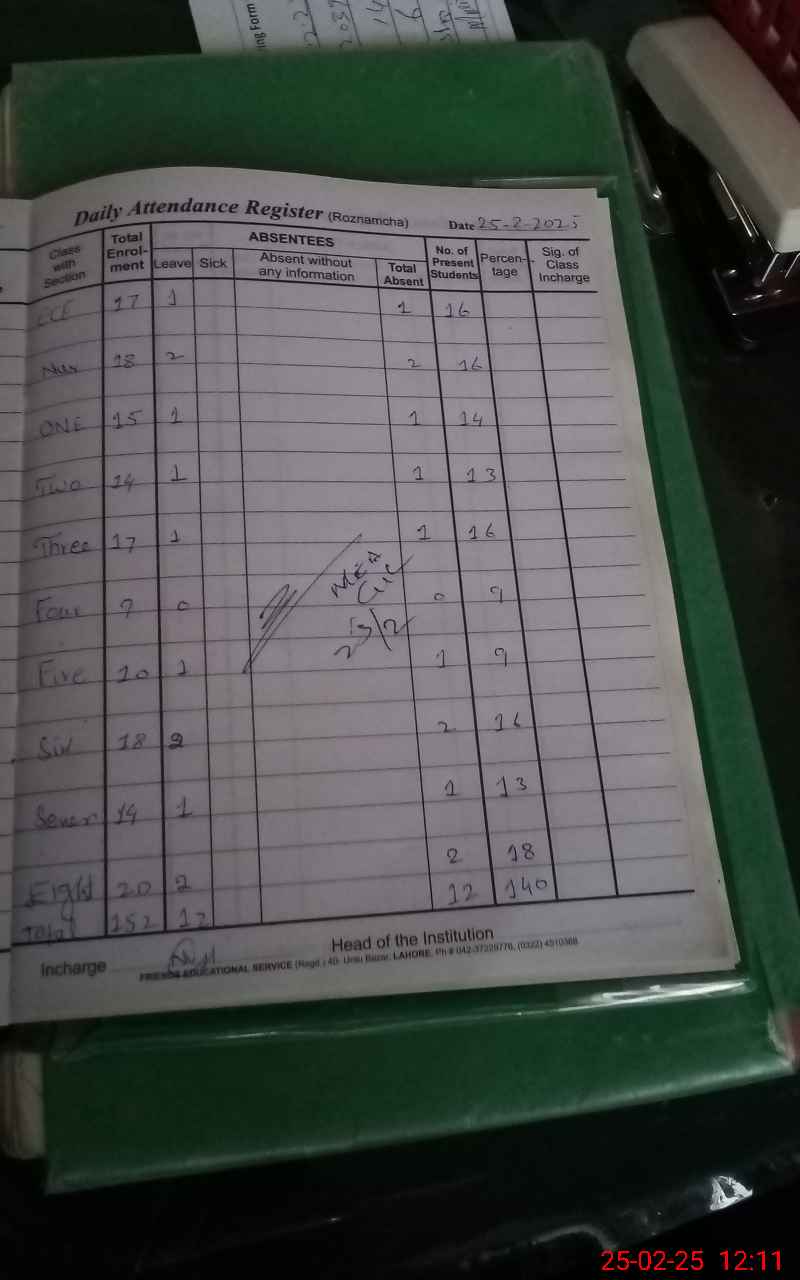 ing Form
Daily Attendance Register (Roznamcha) Date 25-2-2025
Class with Section Total Enrol-ment ABSENTEES Leave Sick Absent without any information Total Absent No. of Present Students Percen-tage Sig. of Class Incharge
ECE 17 1 1 16
Nur 18 2 2 16
ONE 15 1 1 14
Two 14 1 1 13
Three 17 1 1 16
MEA
Four 9 0 0 9
25/2
Five 10 1 1 9
Six 18 2 2 16
Seven 14 1 1 13
Eight 20 2 2 18
Total 152 12 12 140
Incharge Head of the Institution
FRIENDS EDUCATIONAL SERVICE (Regd.) 40- Urdu Bazar, LAHORE. Ph # 042-37229776, (0322) 4510368
25-02-25 12:11